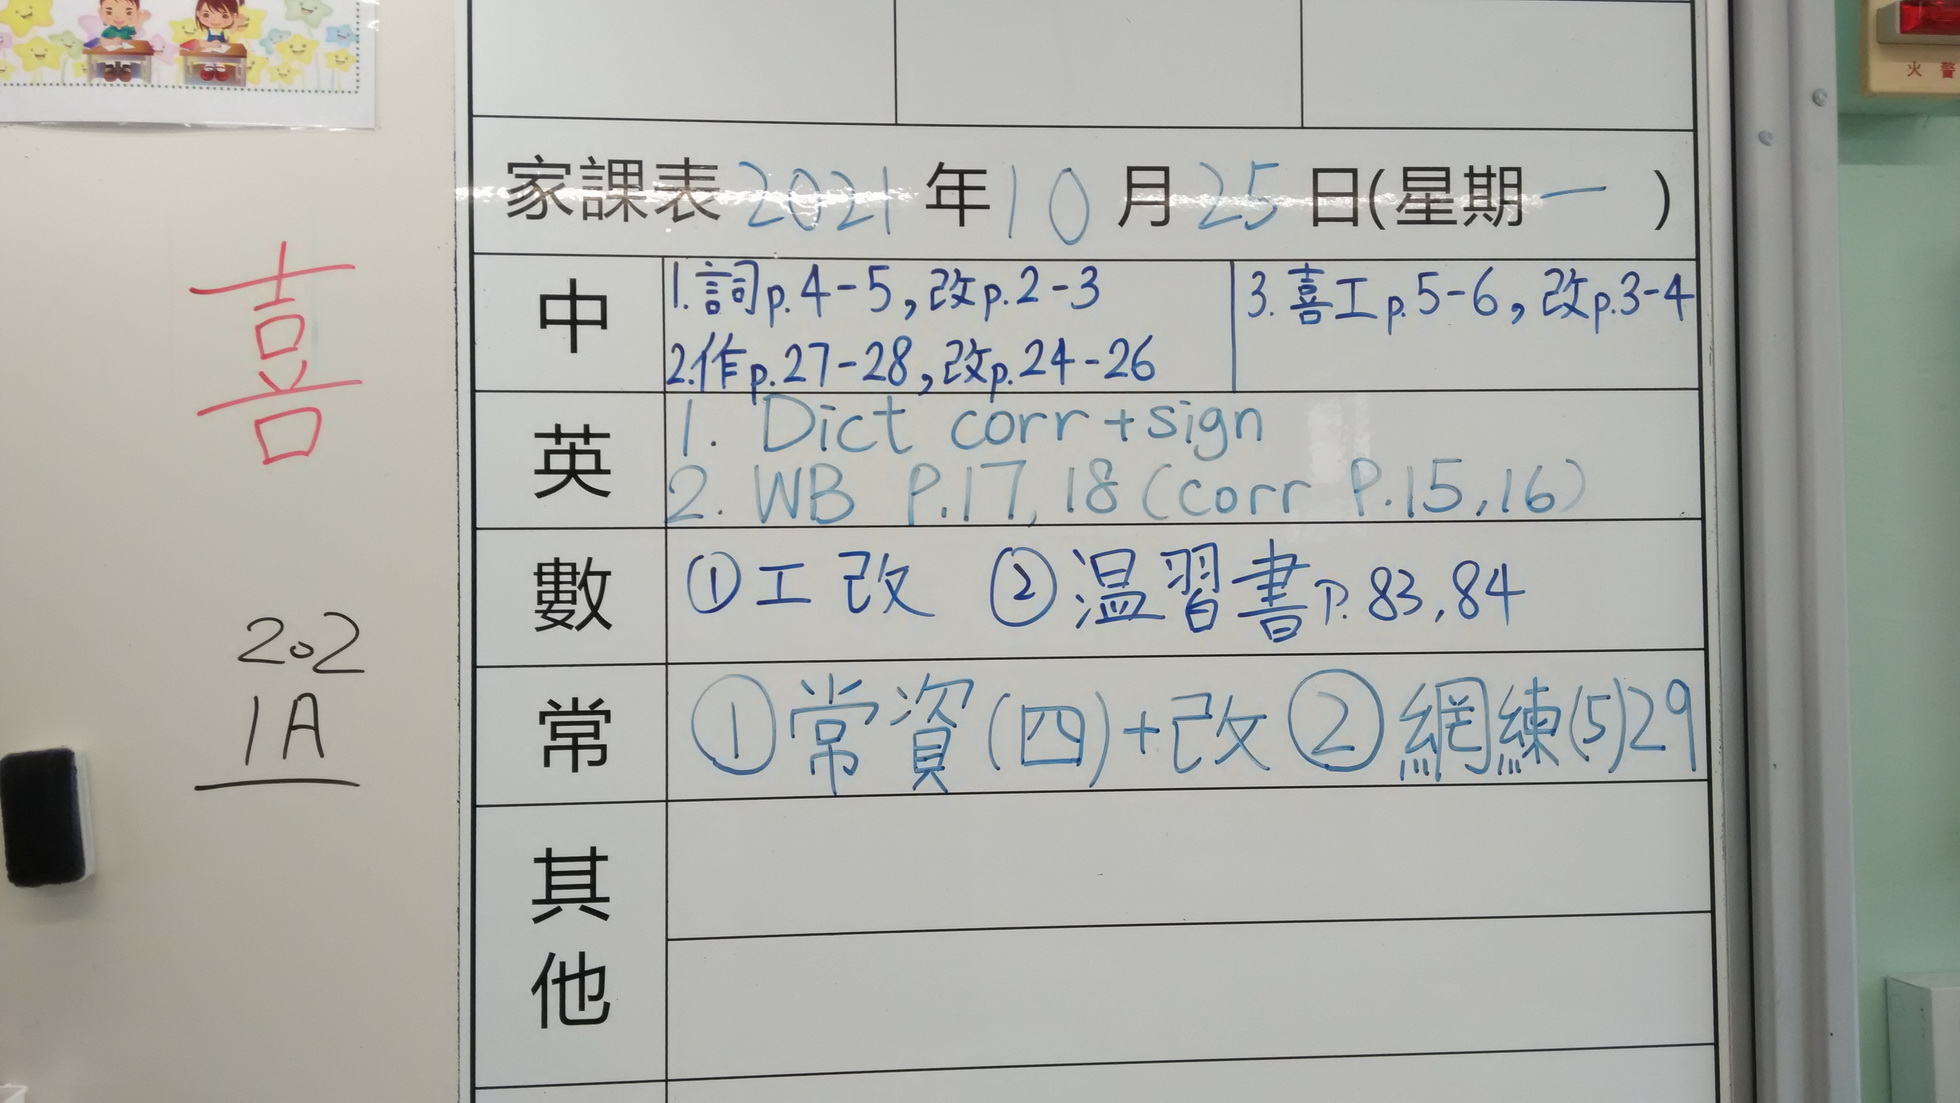 火警
家課表2021年10月25日(星期一)
中
1.詞p.4-5,改p.2-3
2.作p.27-28,改p.24-26
3.喜工p.5-6,改p.3-4
英
1. Dict corr+sign
2. WB P.17,18(corr P.15,16)
數
①工改 ②温習書P.83,84
常
①常資(四)+改②網練(5)29
其他
喜
202
1A